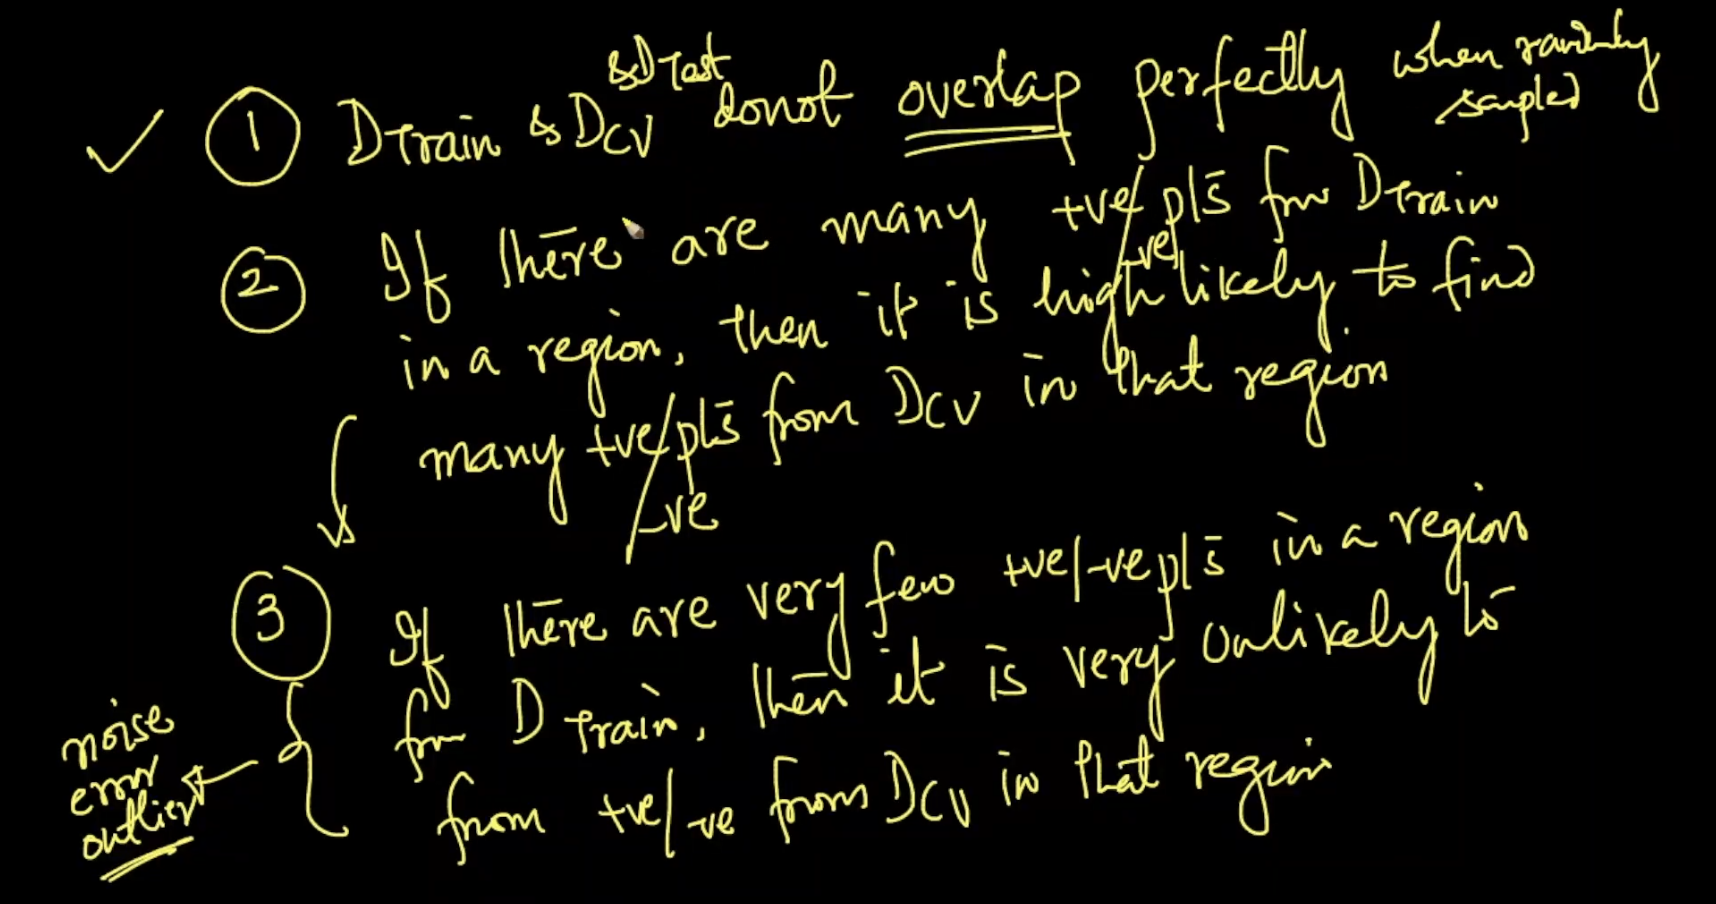 & D Test
✓ ① D Train & D CV do not overlap perfectly when randomly sampled
② If there are many +ve/-ve pts from D Train
in a region, then it is high likely to find
many +ve/-ve pts from D CV in that region
③ If there are very few +ve/-ve pts in a region
from D Train, then it is very unlikely to
from +ve/-ve from D CV in that region
noise
error
outlier